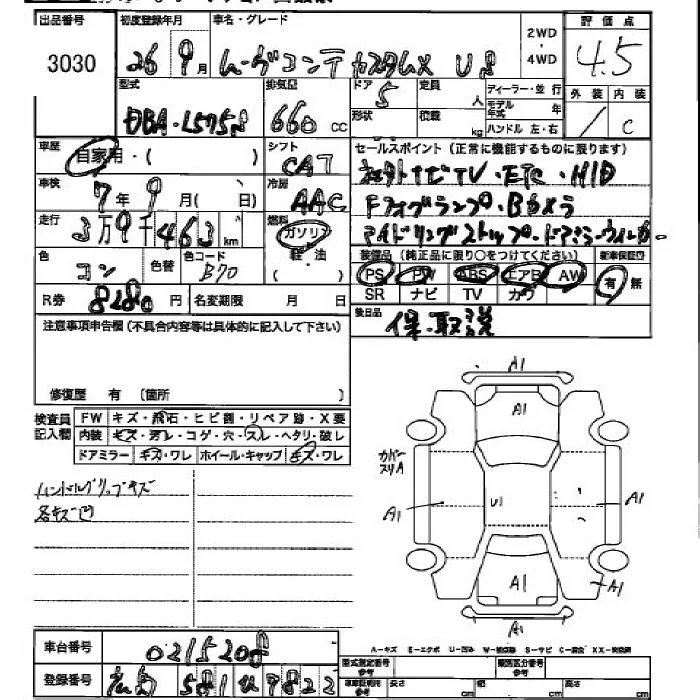 出品番号 初度登録年月 車名・グレード 2WD・4WD 評価点
3030 26 9月 ムーヴコンテ カスタムX 4.5
型式 排気量 ドア 5 定員 人 ディーラー・並行 外装 内装
DBA・L575S 660 cc 形状 積載 kg モデル年式 年 C
ハンドル 左・右
車歴 自家用・( ) シフト CAT セールスポイント(正常に機能するものに限ります)
車検 7年9月(日) 冷房 AAC 社外ナビTV・ETC・HID
走行 3万9千463km 燃料 ガソリン・軽・油 Fフォグランプ・Bカメラ
アイドリングストップ・ドアミラーウィンカー
色 コン 色替 色コード B70 装備品(純正品に限り○をつけてください) 新車保証書
PS PW ABS エアB AW 有・無
R券 8280円 名変期限 月 日 SR ナビ TV カワ
注意事項申告欄(不具合内容等は具体的に記入して下さい) 後日品 保・取説
修復歴 有(箇所 )
検査員記入欄 FW キズ・飛石・ヒビ割・リペア跡・X要
内装 キズ・汚レ・コゲ・穴・スレ・ヘタリ・破レ
ドアミラー キズ・ワレ ホイール・キャップ キズ・ワレ
ハンドルグリップキズ
各キズ凹
A1
A1
カバースリA
A1 U1 A1
A1 A1
A1
車台番号 0215208
登録番号 581 7822
A-キズ E-エクボ U-凹み
型式指定番号 参考 類別区分番号 参考
車庫証明用 参考 長さ cm 幅 cm 高さ cm